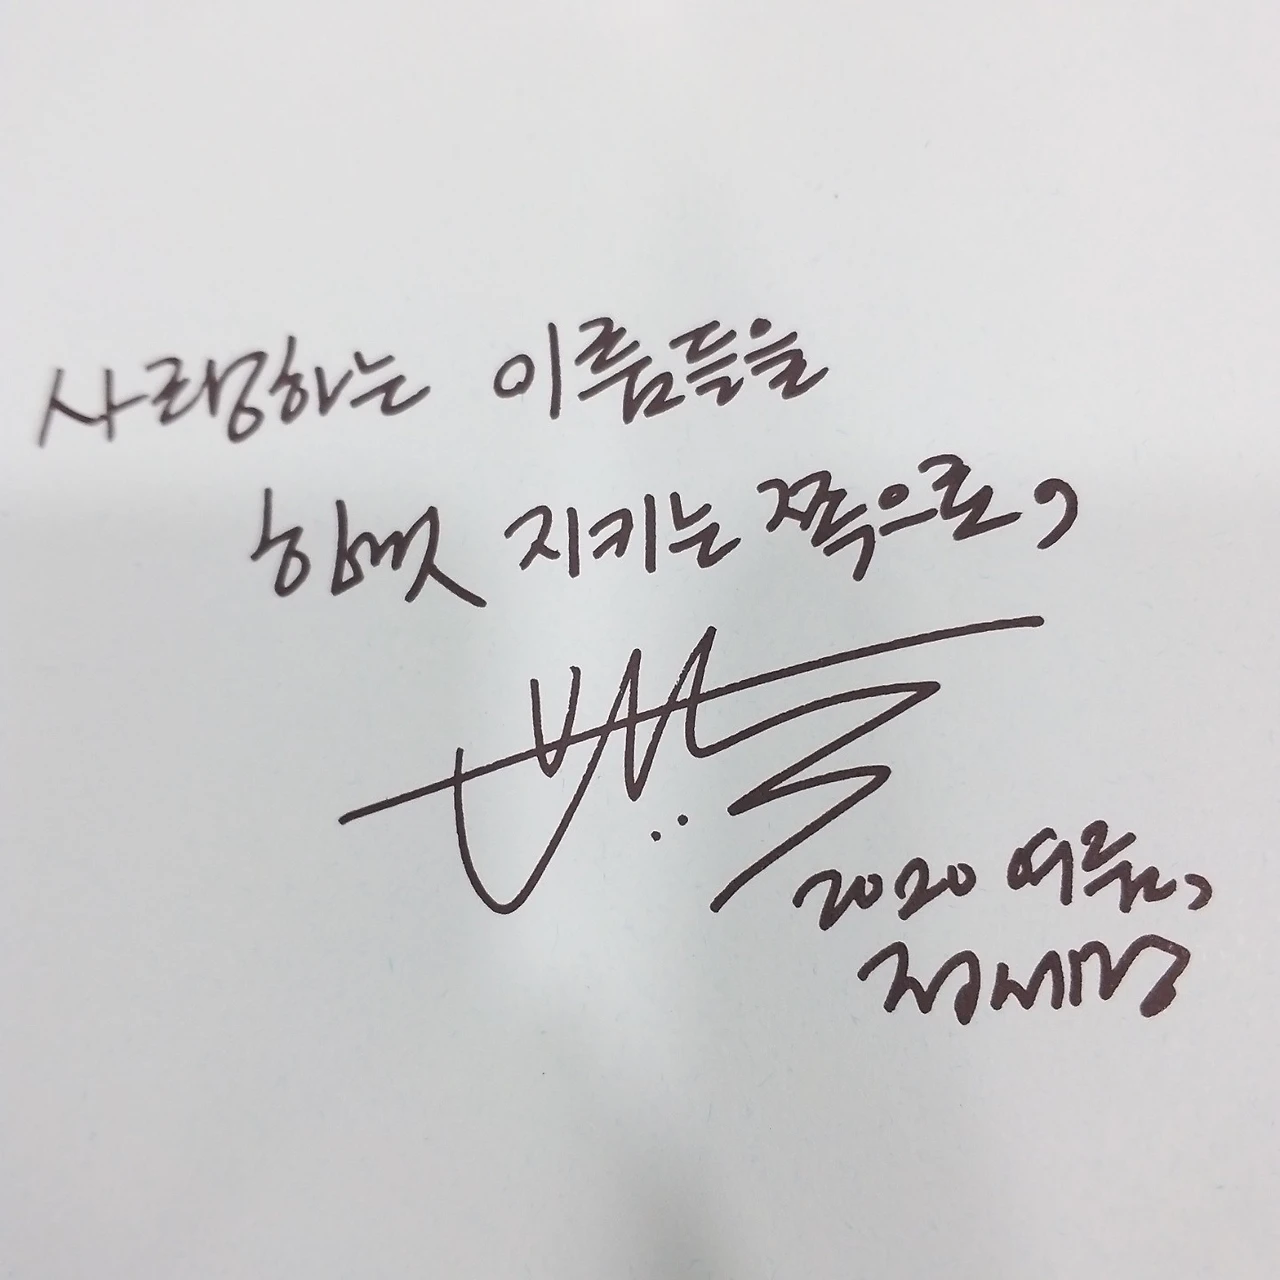 사랑하는 이름들을
힘껏 지키는 쪽으로,
2020 여름,
정세랑